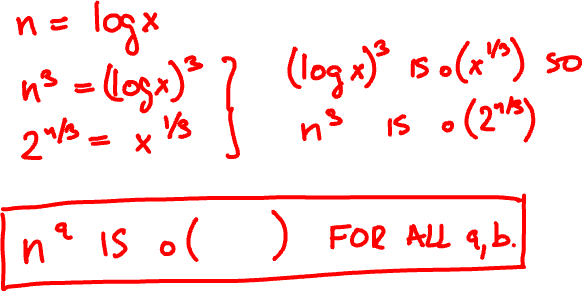 n = log x
n³ = (log x)³
2^(n/3) = x^(1/3)
(log x)³ IS o(x^(1/3)) SO
n³ IS o(2^(n/3))
n^a IS o( ) FOR ALL a, b.